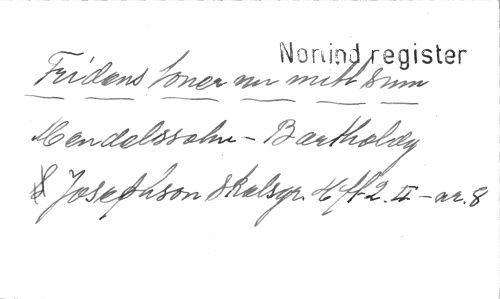 Nonind register
Fridens toner nu mitt
Mendelssohn - Bartholdy
& Josephson Skolsgr. Hft 2. II - nr. 8